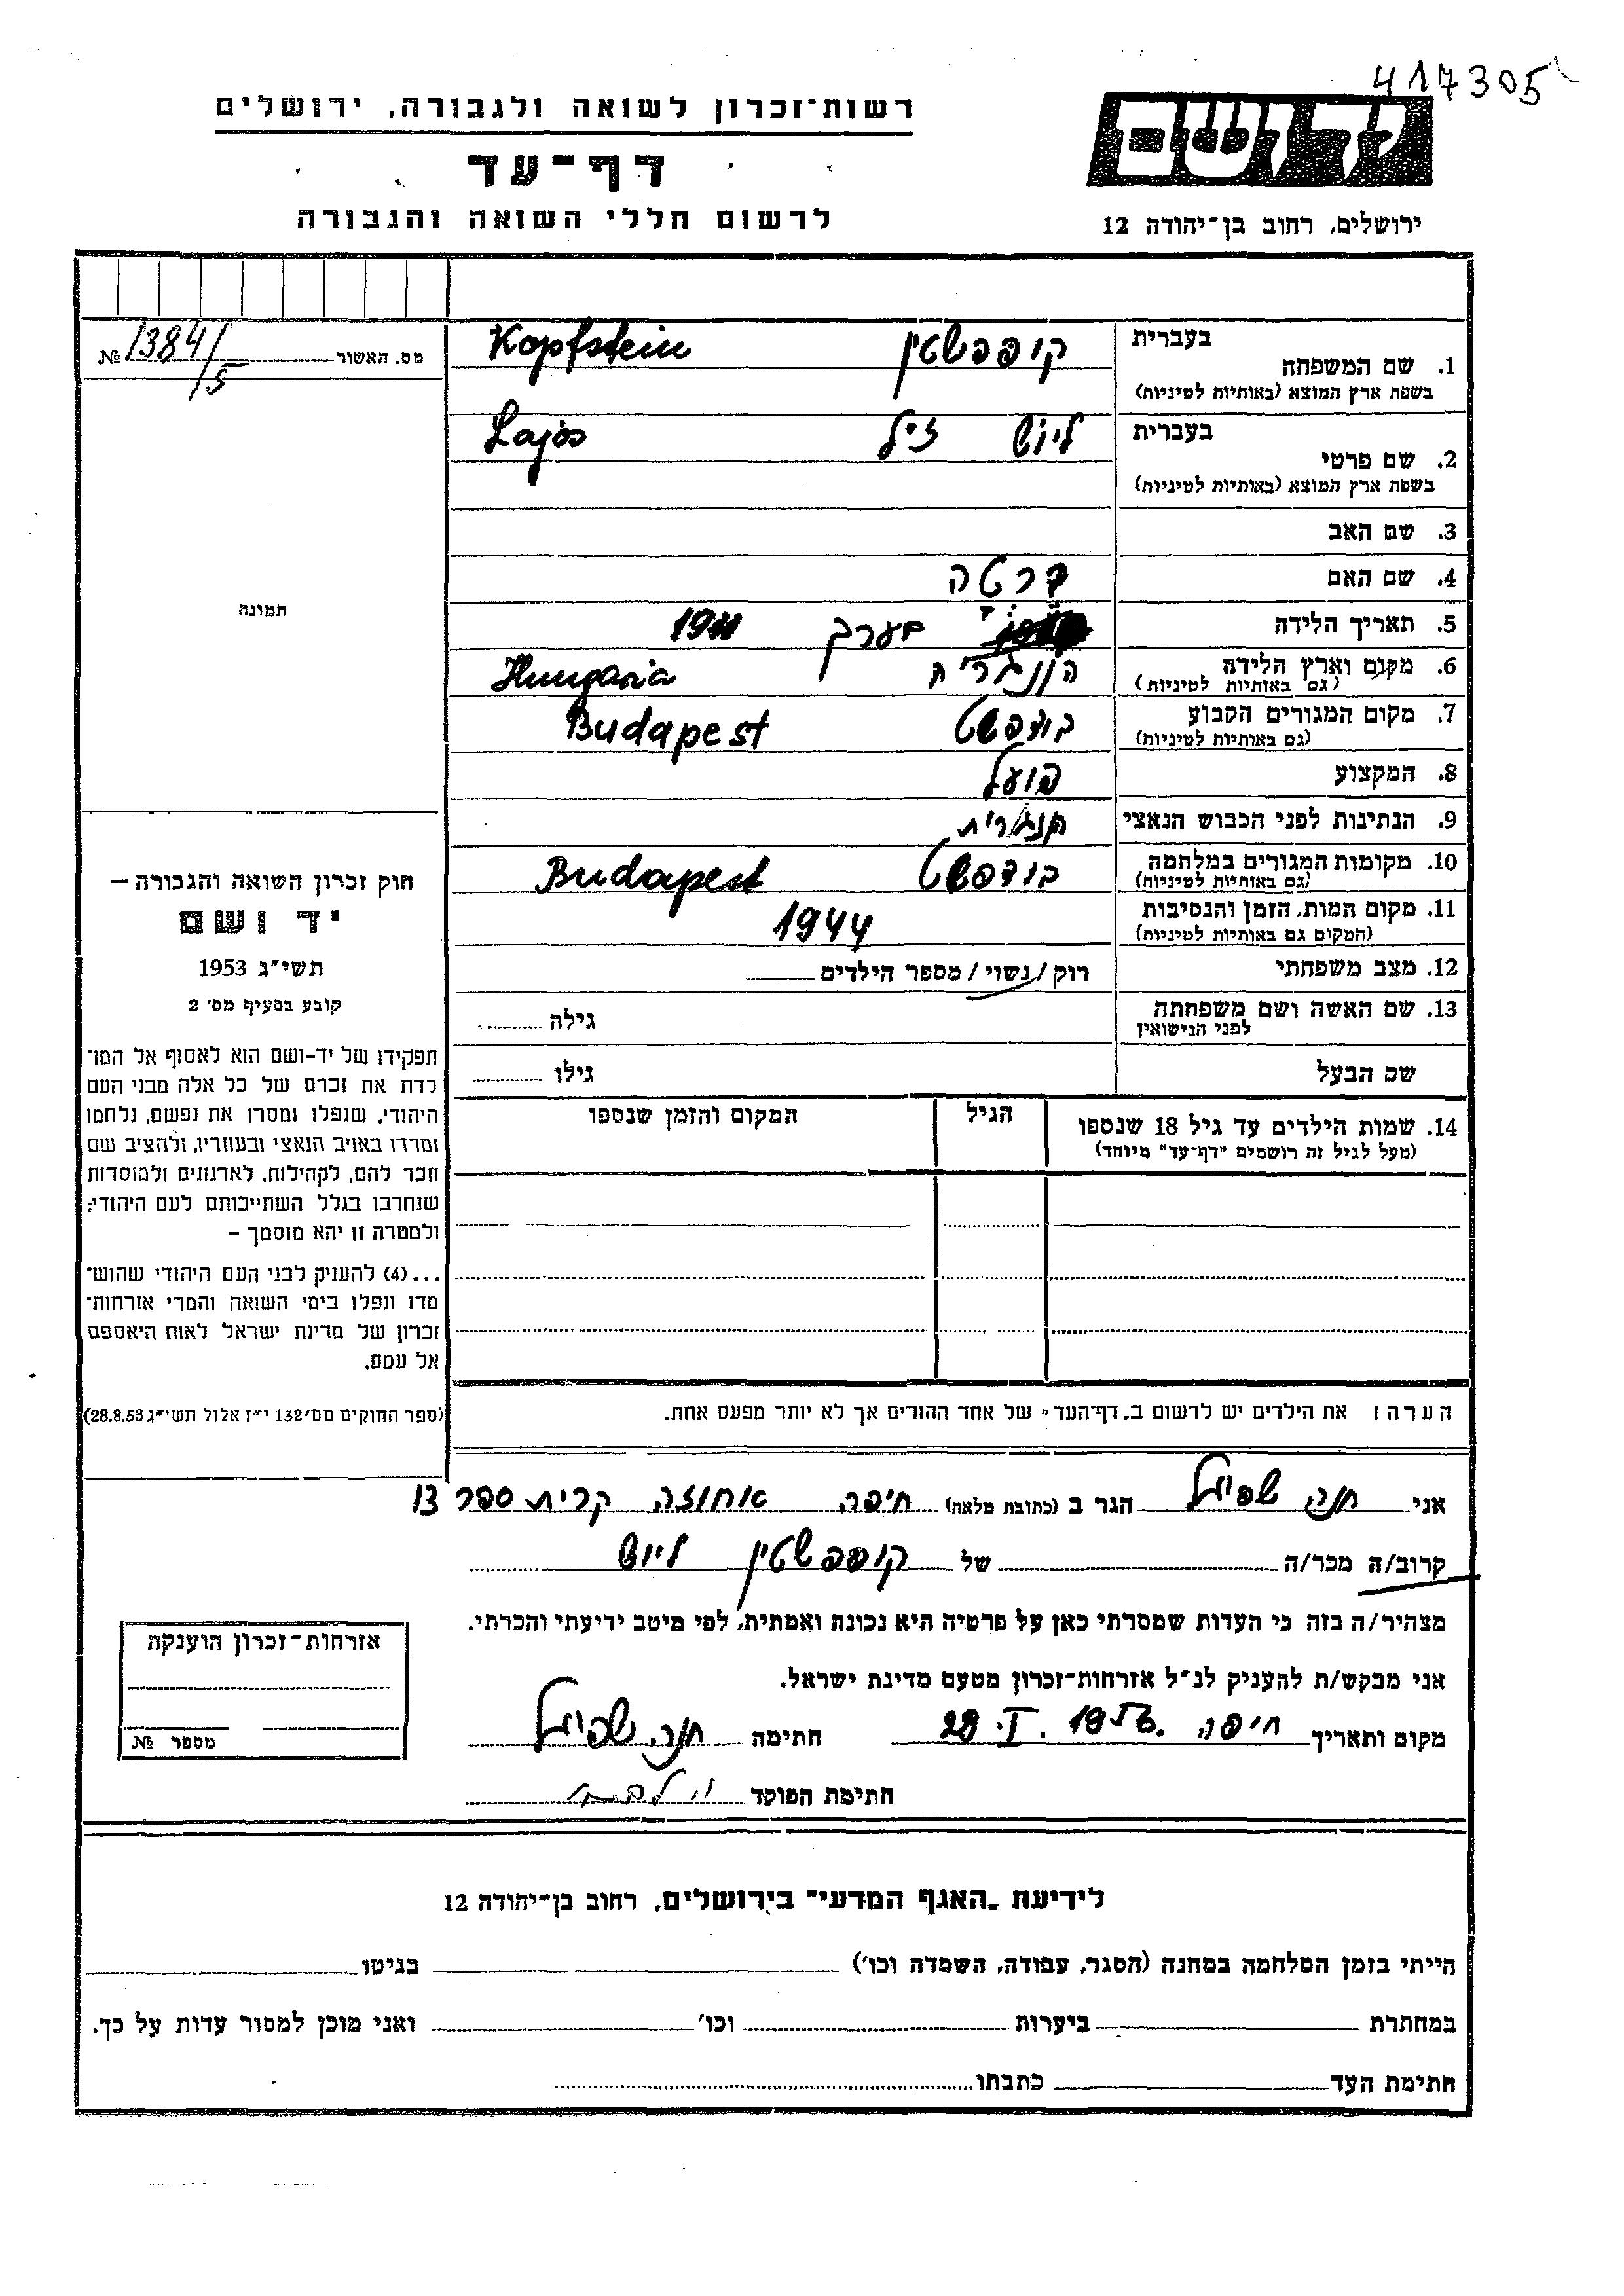 417305
רשות־זכרון לשואה ולגבורה, ירושלים
דף־עד
לרשום חללי השואה והגבורה
יד ושם
ירושלים, רחוב בן־יהודה 12
מס. האשור 1384/5 №
תמונה
חוק זכרון השואה והגבורה —
יד ושם
תשי״ג 1953
קובע בסעיף מס׳ 2
תפקידו של יד-ושם הוא לאסוף אל המו־
לדת את זכרם של כל אלה מבני העם
היהודי, שנפלו ומסרו את נפשם, נלחמו
ומרדו באויב הנאצי ובעוזריו, ולהציב שם
וזכר להם, לקהילות, לארגונים ולמוסדות
שנחרבו בגלל השתייכותם לעם היהודי;
ולמטרה זו יהא מוסמך —
...(4) להעניק לבני העם היהודי שהוש־
מדו ונפלו בימי השואה והמרי אזרחות־
זכרון של מדינת ישראל לאות היאספם
אל עמם.
(ספר החוקים מס׳ 132 י״ז אלול תשי״ג 28.8.53)
1. שם המשפחה בעברית קופפשטין Kopfstein
בשפת ארץ המוצא (באותיות לטיניות)
2. שם פרטי בעברית ליוש ז״ל Lajos
בשפת ארץ המוצא (באותיות לטיניות)
3. שם האב
4. שם האם ברטה
5. תאריך הלידה בערך
6. מקום וארץ הלידה הונגריה Hungaria
(גם באותיות לטיניות)
7. מקום המגורים הקבוע בודפשט Budapest
(גם באותיות לטיניות)
8. המקצוע פועל
9. הנתינות לפני הכבוש הנאצי הנגרית
10. מקומות המגורים במלחמה בודפשט Budapest
(גם באותיות לטיניות)
11. מקום המות, הזמן והנסיבות 1944
(המקום גם באותיות לטיניות)
12. מצב משפחתי רוק/נשוי/מספר הילדים
13. שם האשה ושם משפחתה גילה
לפני הנישואין
שם הבעל גילו
14. שמות הילדים עד גיל 18 שנספו הגיל המקום והזמן שנספו
(מעל לגיל זה רושמים ״דף־עד״ מיוחד)
הערה: את הילדים יש לרשום ב„דף־העד״ של אחד ההורים אך לא יותר מפעם אחת.
אני חנה שפיגל הגר ב (כתובת מלאה) חיפה אחוזה קרית ספר 13
קרוב/ה מכר/ה של קופפשטין ליוש
מצהיר/ה בזה כי העדות שמסרתי כאן על פרטיה היא נכונה ואמתית, לפי מיטב ידיעתי והכרתי.
אני מבקש/ת להעניק לנ״ל אזרחות־זכרון מטעם מדינת ישראל.
מקום ותאריך חיפה 28.I. חתימה חנה שפיגל
חתימת הפוקד
אזרחות־זכרון הוענקה
מספר №
לידיעת „האגף המדעי״ בירושלים, רחוב בן־יהודה 12
הייתי בזמן המלחמה במחנה (הסגר, עבודה, השמדה וכו׳) בגיטו
במחתרת ביערות וכו׳ ואני מוכן למסור עדות על כך.
חתימת העד כתבתו